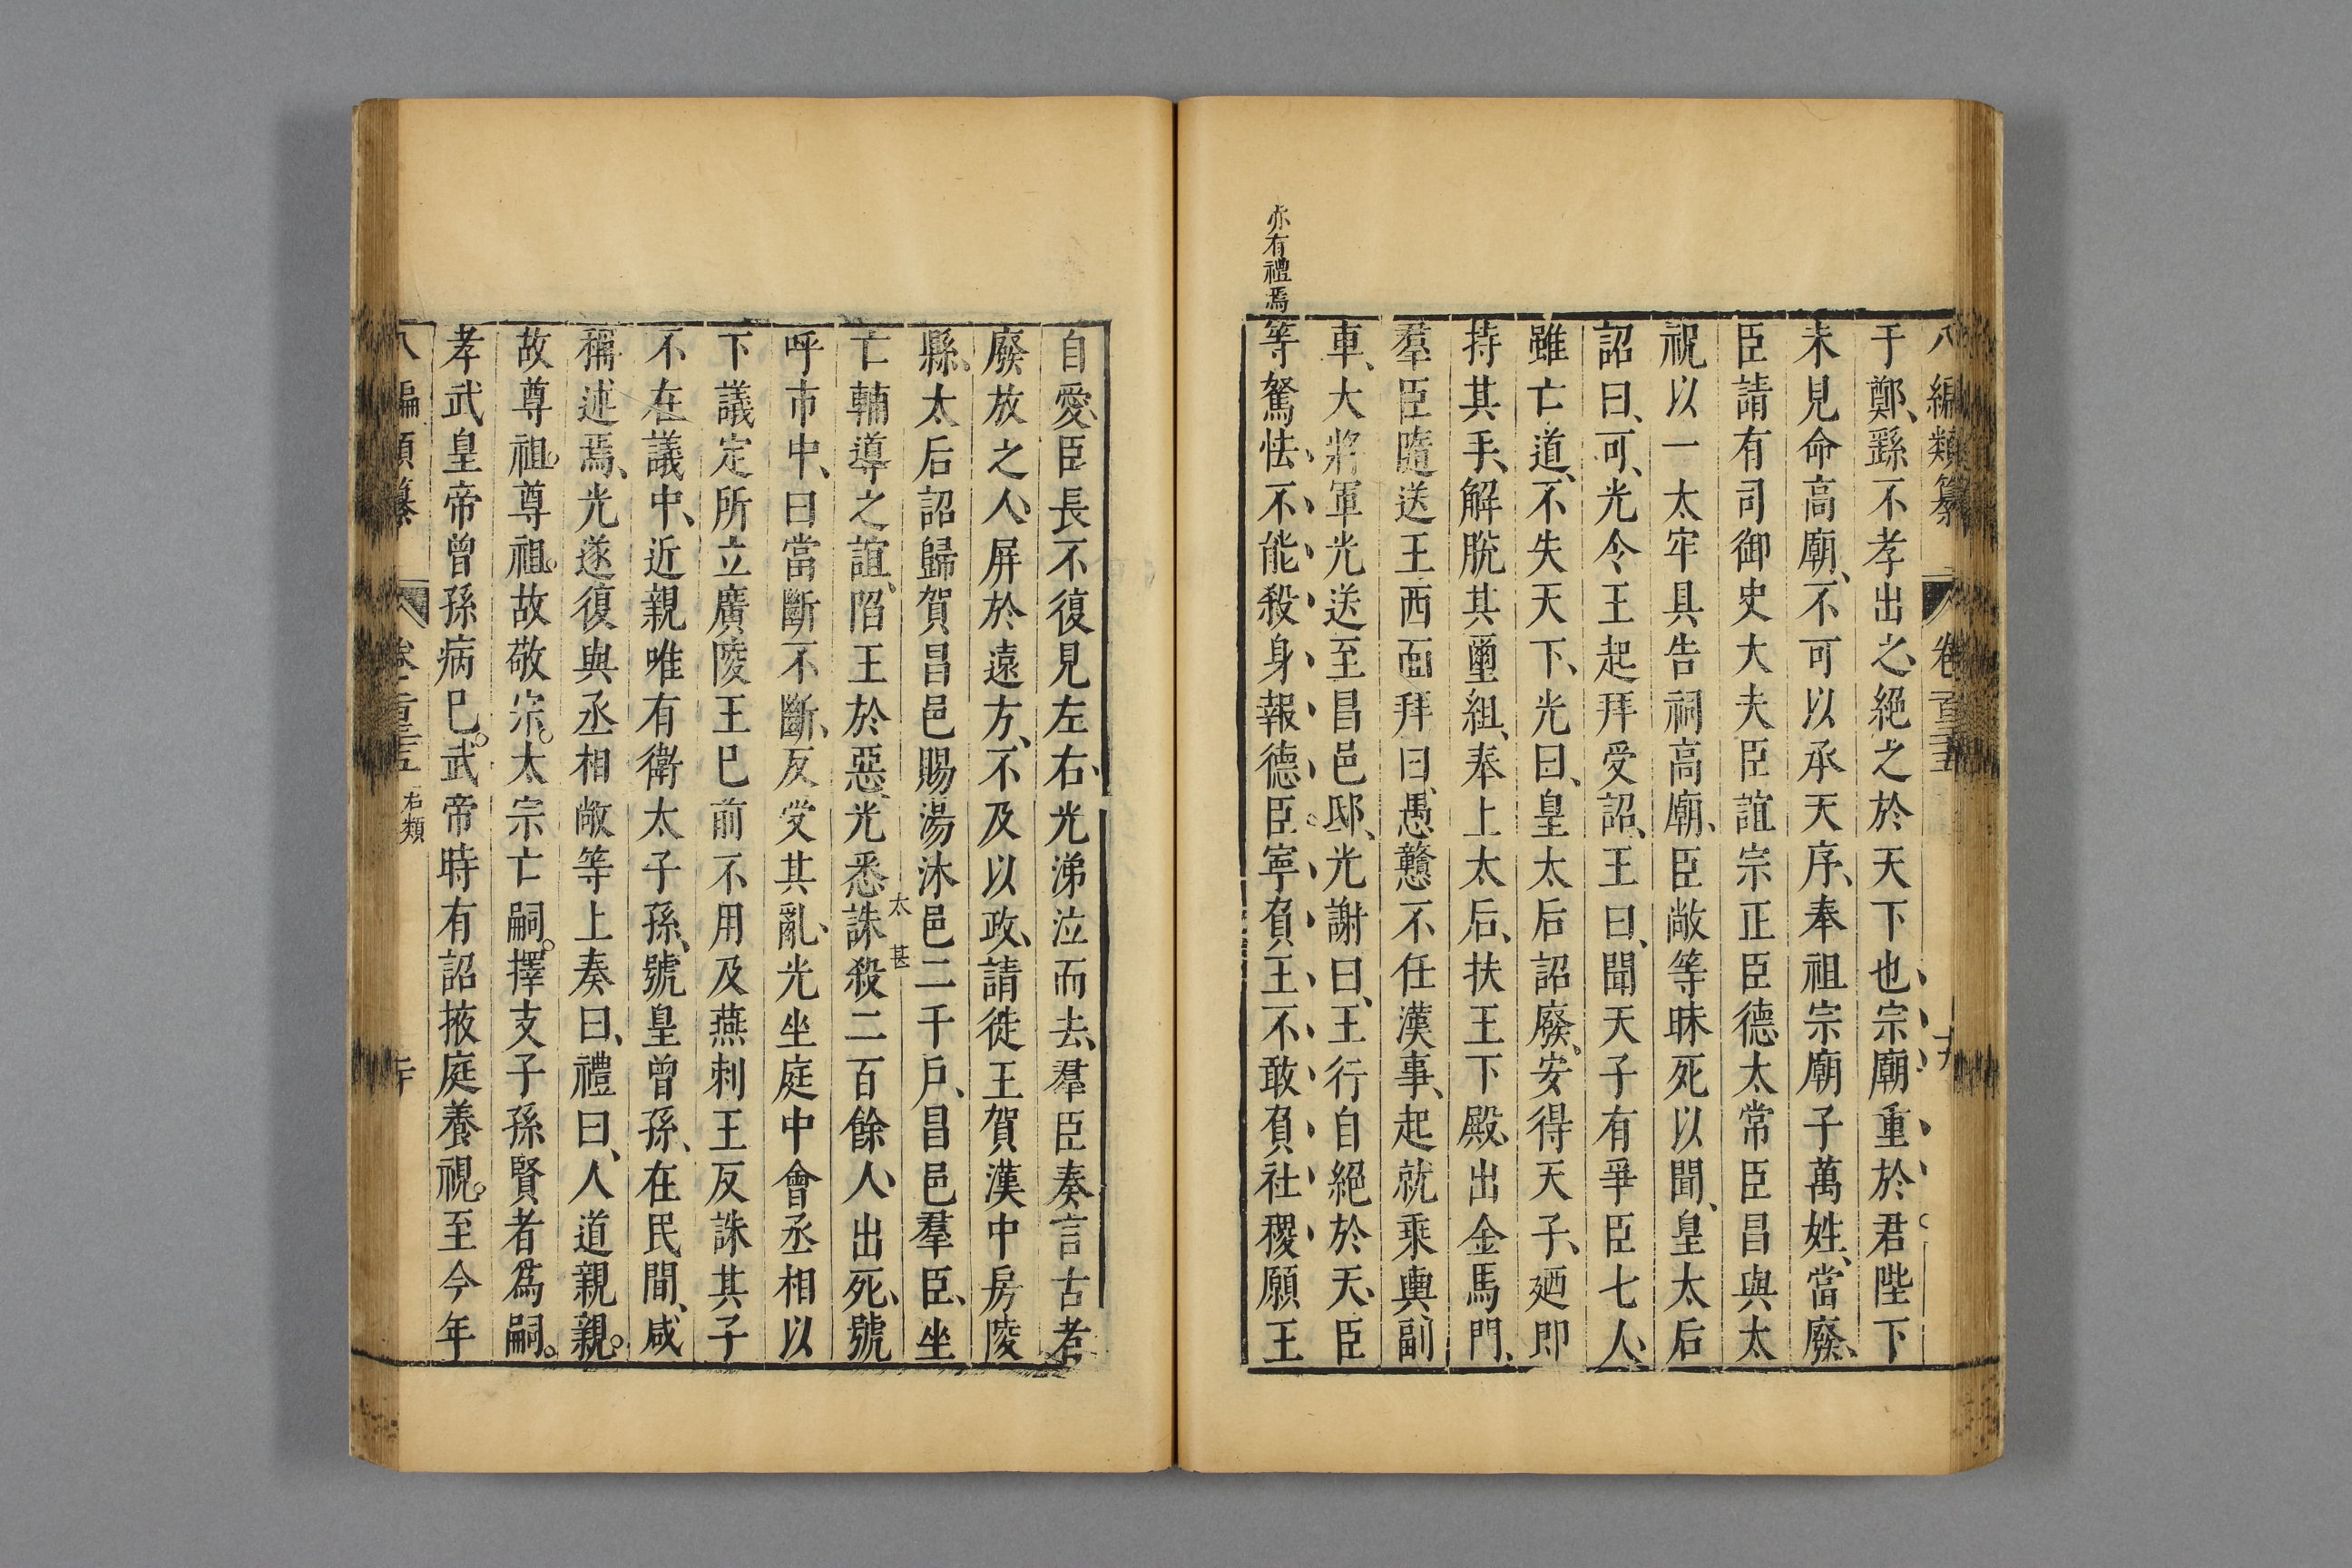 八編類纂 卷一百三十五 十九
于鄭、繇不孝出之、絕之於天下也宗廟重於君陛下
未見命高廟、不可以承天序、奉祖宗廟子萬姓、當廢、
臣請有司御史大夫臣誼宗正臣德、太常臣昌與太
祝以一太牢具告祠高廟、臣敞等昧死以聞、皇太后
詔曰、可、光令王起拜受詔、王曰、聞天子有爭臣七人、
雖亡道、不失天下、光曰、皇太后詔廢、安得天子、廼即
持其手、解脫其璽組、奉上太后、扶王下殿、出金馬門、
羣臣隨送王西面拜曰、愚戇不任漢事、起就乘輿、副
車、大將軍光送至昌邑邸、光謝曰、王行自絕於天、臣
亦有禮焉
等駑怯、不能殺身報德臣寧負王不敢負社稷願王
自愛、臣長不復見左右、光涕泣而去、羣臣奏言古者
廢放之人、屏於遠方、不及以政、請徙王賀漢中房陵
縣、太后詔歸賀昌邑賜湯沐邑二千戶、昌邑羣臣、坐
太甚
亡輔導之誼、陷王於惡、光悉誅殺二百餘人、出死、號
呼市中、曰當斷不斷、反受其亂、光坐庭中會丞相以
下議定所立廣陵王已前不用及燕刺王反誅其子
不在議中、近親唯有衛太子孫、號皇曾孫、在民間、咸
稱述焉、光遂復與丞相敞等上奏曰、禮曰、人道親親。
故尊祖。尊祖。故敬宗。太宗亡嗣。擇支子孫賢者爲嗣。
孝武皇帝曾孫病已。武帝時有詔掖庭養視。至今年
八編類纂 卷 右類